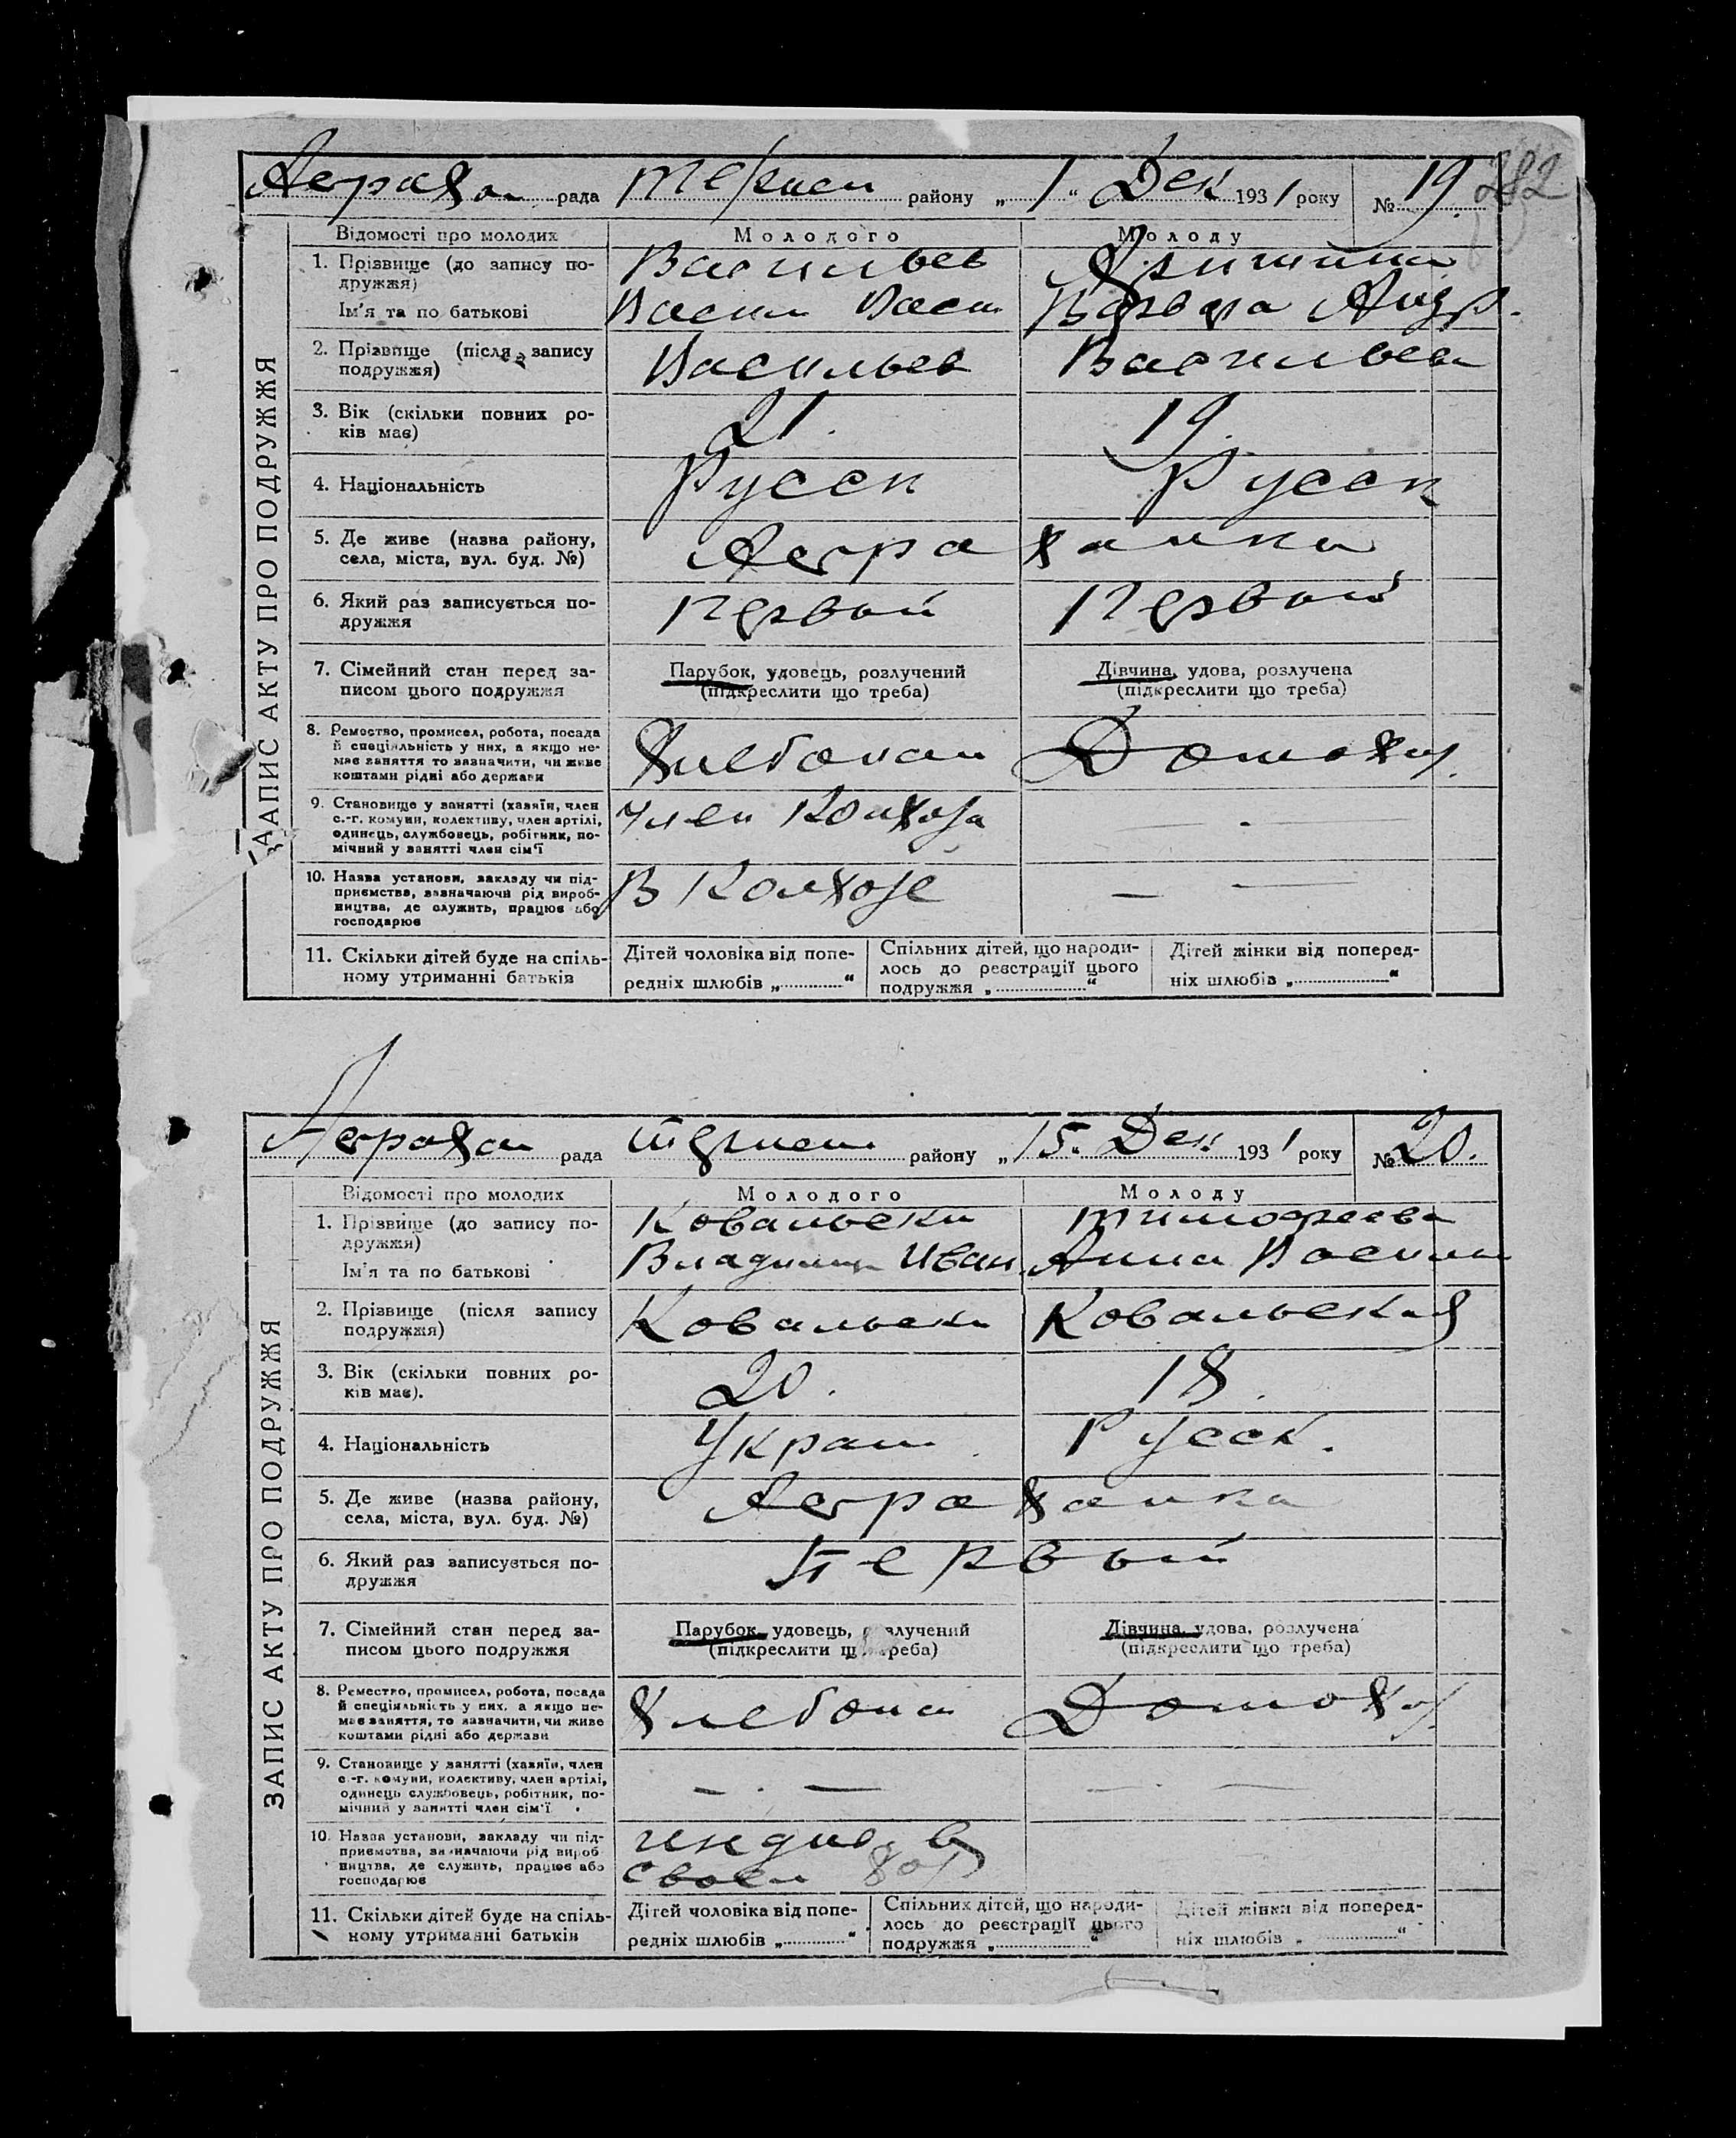 Астрахан рада район у „ 1 “ Дек 1931 року № 19.
282
ЗАПИС АКТУ ПРО ПОДРУЖЖЯ
Відомості про молодих Молодого Молоду
1. Прізвище (до запису по- Васильев
дружжя)
Ім'я та по батькові Васил Васил Варвара Андр.
2. Прізвище (після запису Васильев Васильева
подружжя)
3. Вік (скільки повних ро- 21. 19.
ків має)
4. Національність Русск Русск
5. Де живе (назва району, Астраханка
села, міста, вул. буд. №)
6. Який раз записується по- Первый Первый
дружжя
7. Сімейний стан перед за- Парубок, удовець, розлучений Дівчина, удова, розлучена
писом цього подружжя (підкреслити що треба) (підкреслити що треба)
8. Ремество, промисел, робота, посада Хлебопаш Домохоз.
й спеціяльність у них, а якщо не-
має заняття то зазначити, чи живе
коштами рідні або держави
9. Становище у занятті (хазяїн, член Член Колхоза —
с.-г. комуни, колективу, член артілі,
одинець, службовець, робітник, по-
мічний у занятті член сім'ї
10. Назва установи, закладу чи під- В Колхозе — —
приємства, зазначаючи рід вироб-
ництва, де служить, працює або
господарює
11. Скільки дітей буде на спіль- Дітей чоловіка від попе- Спільних дітей, що народи- Дітей жінки від поперед-
ному утриманні батьків редніх шлюбів „ “ лось до реєстрації цього ніх шлюбів „ “
подружжя „ “
Астрахан рада район у „ 15. Дек. 1931 року № 20.
ЗАПИС АКТУ ПРО ПОДРУЖЖЯ
Відомості про молодих Молодого Молоду
1. Прізвище (до запису по- Ковальски Тимофеева
дружжя)
Ім'я та по батькові Владимир Иван. Анна Васил
2. Прізвище (після запису Ковальски Ковальская
подружжя)
3. Вік (скільки повних ро- 20. 18.
ків має).
4. Національність Украин Русск.
5. Де живе (назва району, Астраханка
села, міста, вул. буд. №)
6. Який раз записується по- Первый
дружжя
7. Сімейний стан перед за- Парубок, удовець, розлучений Дівчина, удова, розлучена
писом цього подружжя (підкреслити що треба) (підкреслити що треба)
8. Ремество, промисел, робота, посада Хлебопаш Домохоз.
й спеціяльність у них, а якщо не-
має заняття, то зазначити, чи живе
коштами рідні або держави
9. Становище у занятті (хазяїн, член — . — — —
с.-г. комуни, колективу, член артілі,
одинець службовець, робітник, по-
мічний у занятті член сім'ї
10. Назва установи, закладу чи під- в
приємства, зазначаючи рід вироб- своем хоз
ництва, де служить, працює або
господарює
11. Скільки дітей буде на спіль- Дітей чоловіка від попе- Спільних дітей, що народи- Дітей жінки від поперед-
ному утриманні батьків редніх шлюбів „ “ лось до реєстрації цього ніх шлюбів „ “
подружжя „ “